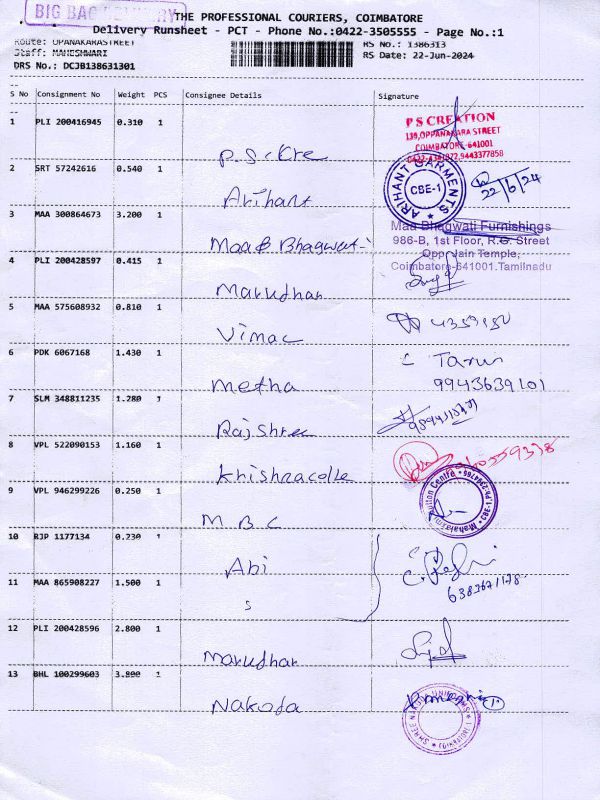 BIG BAG DELIVERY
THE PROFESSIONAL COURIERS, COIMBATORE
Delivery Runsheet - PCT - Phone No.:0422-3505555 - Page No.:1
Route: OPANAKARASTREET
Staff: MAHESHWARI
DRS No.: DCJB138631301
RS No.: 1386313
RS Date: 22-Jun-2024
S No Consignment No Weight PCS Consignee Details Signature
1 PLI 200416945 0.310 1
P.S. P S CREATION
139,OPPANAKARA STREET
COIMBATORE-641001
2 SRT 57242616 0.540 1
Arihant ARIHANT GARMENTS CBE-1 22/6/24
3 MAA 300864673 3.200 1
Maa B Bhagwati Maa Bhagwati Furnishings
986-B, 1st Floor, R.G. Street
Opp. Jain Temple,
Coimbatore-641001.Tamilnadu
4 PLI 200428597 0.415 1
Marudhar
5 MAA 575608932 0.810 1
Vimal
6 PDK 6067168 1.430 1
Metha Tarun
9943639101
7 SLM 348811235 1.280 1
Rajshree
8 VPL 522090153 1.160 1
Krishna
9 VPL 946299226 0.250 1
M B C
10 RJP 1177134 0.230 1
Abi
11 MAA 865908227 1.500 1
S
12 PLI 200428596 2.800 1
Marudhar
13 BHL 100299603 3.800 1
Nakoda